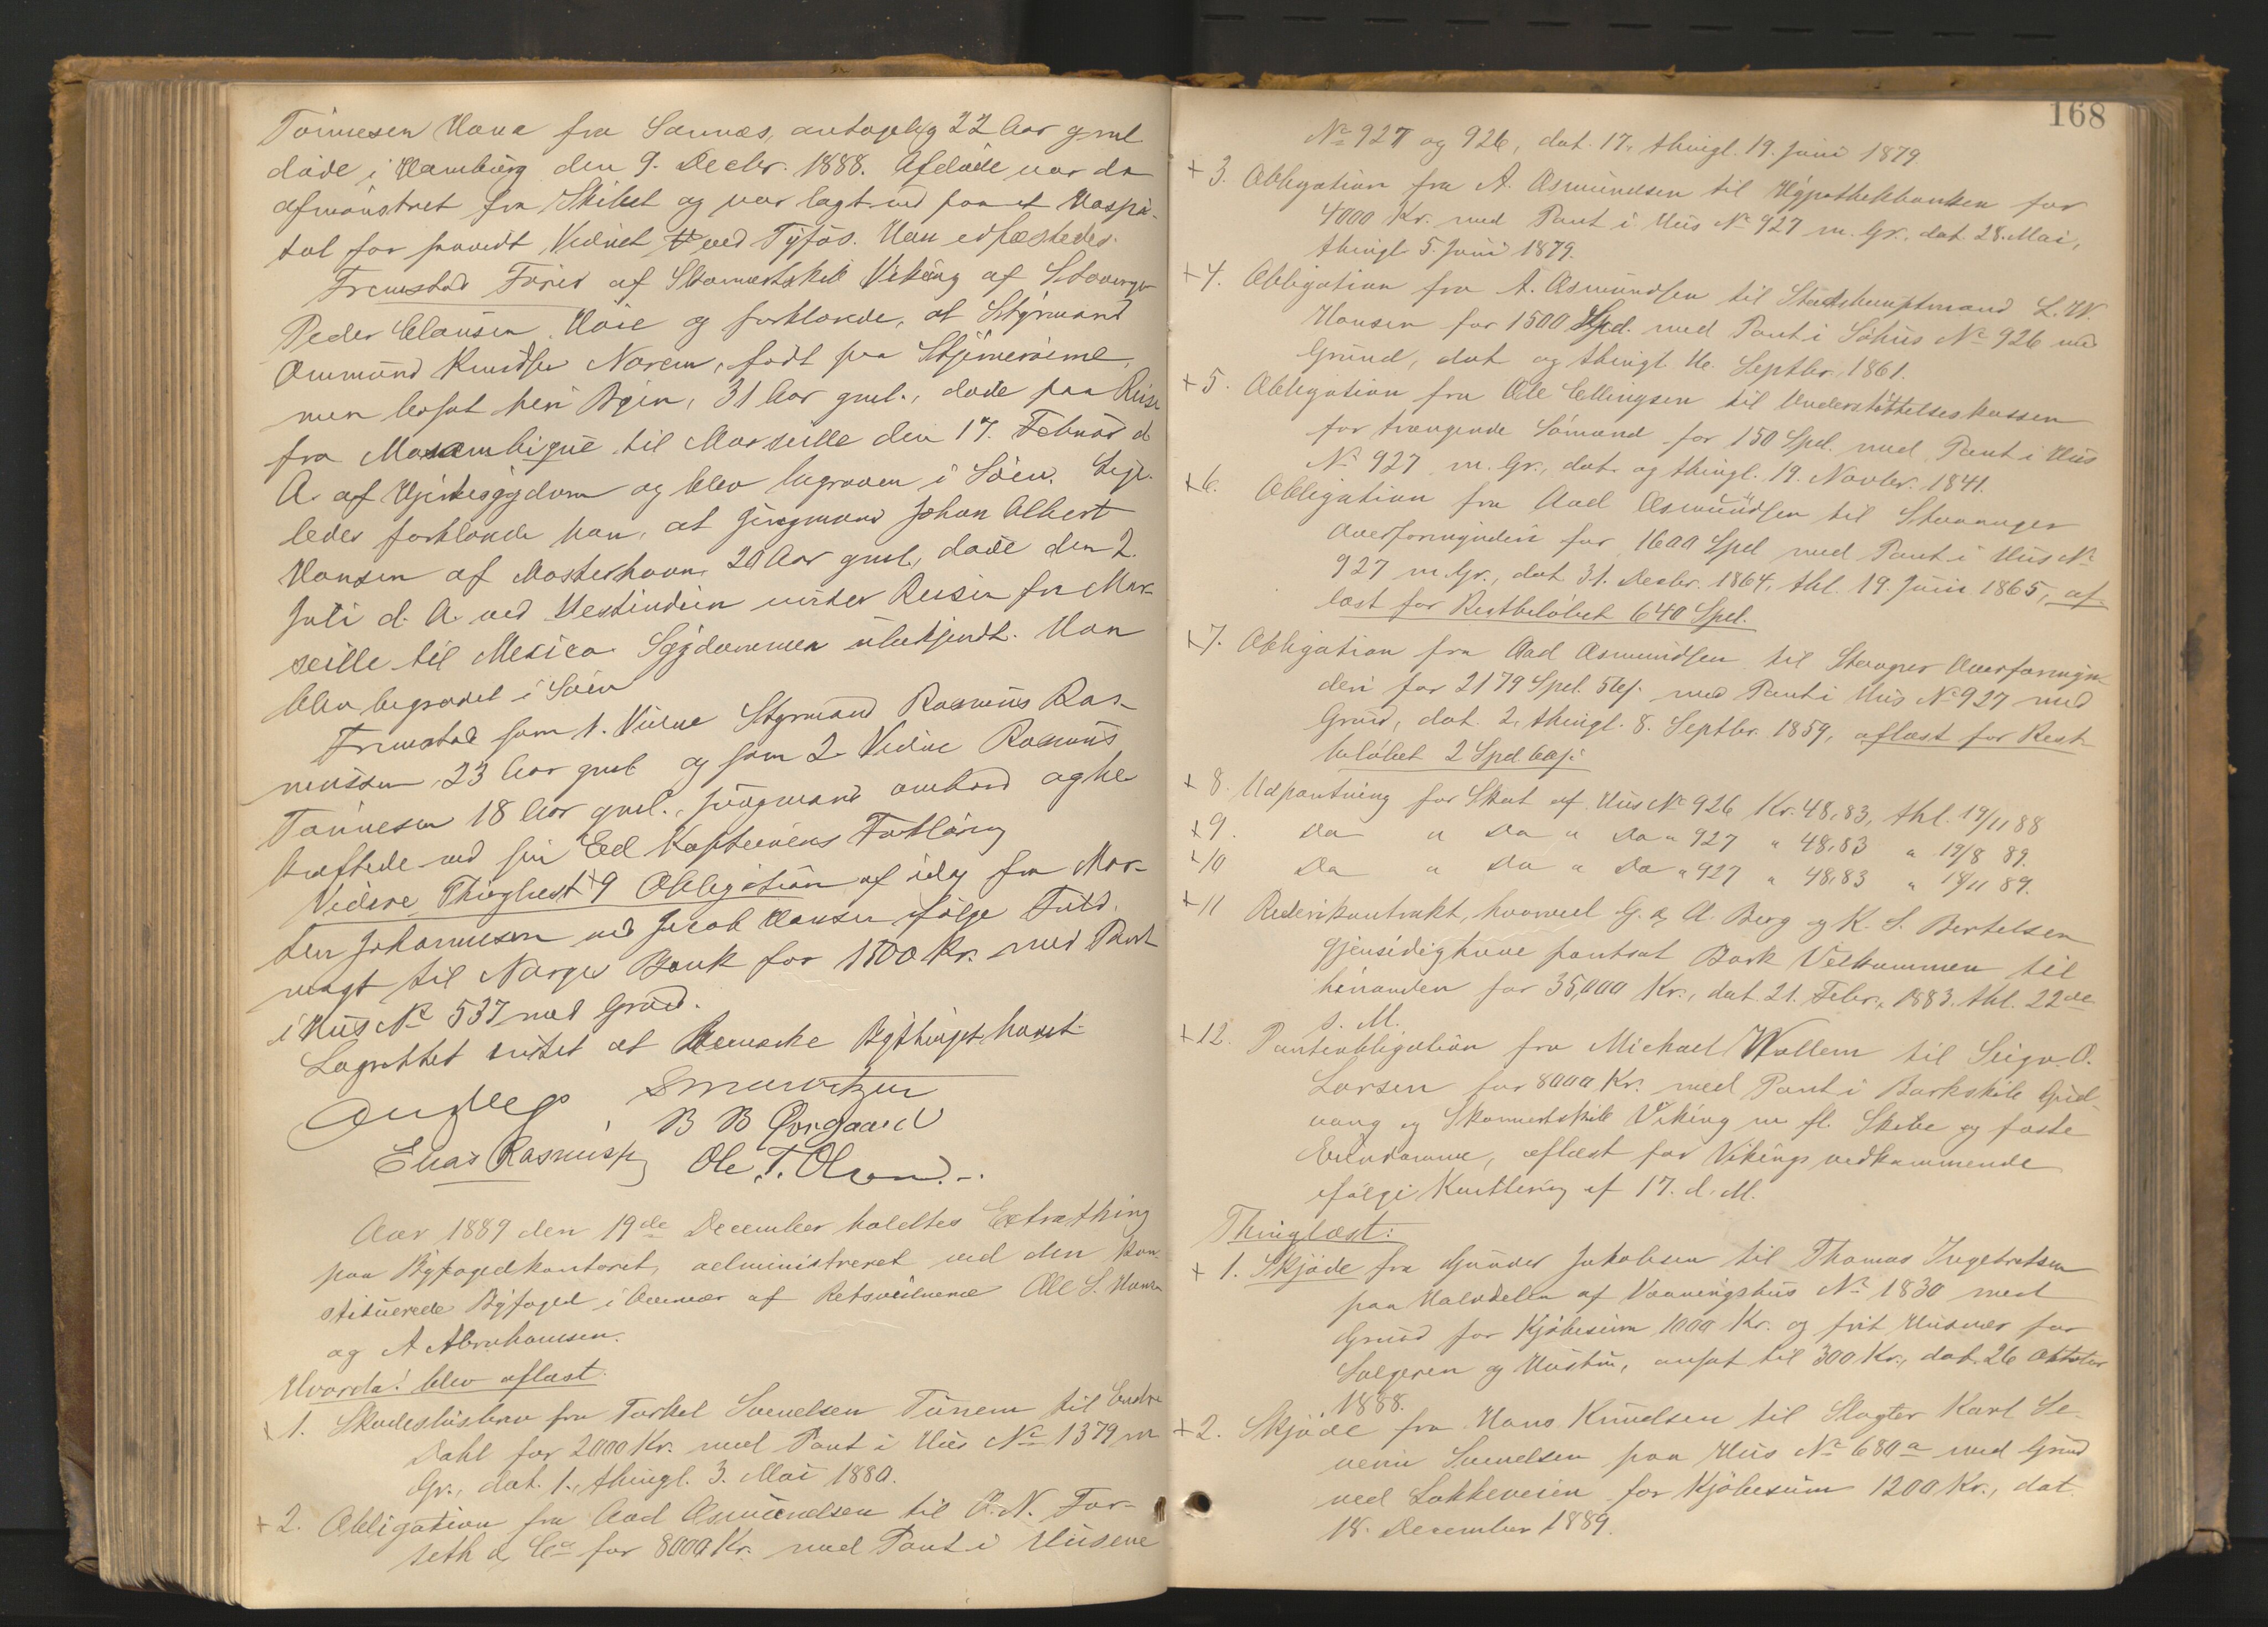 Tönnesen Hana fra Sannæs, antagelig 22 Aar gml
döde i Hamburg den 9. Decbr. 1888. Afdöde var da
afmönstret fra Skibet og var lagt ind paa et Hospi-
tal for saavidt Vidnet ved Tyfus. Han edfæstedes.
Fremstod Förer af Skonnertskib Viking af Stavanger
Peder Clausen Höie og forklarede, at Styrmand
Ommund Knudsen Norem, födt paa
men bosat her i Byen, 31 Aar gml., döde paa Reise
fra Mosambique til Marseille den 17. Februar d.
A. af Hjertesygdom og blev begraven i Söen. Lige-
ledes forklarede han, at Jungmand Johan Albert
Hansen af Mosterhavn 20 Aar gml., döde den 2.
Juli d. A. ved Vestindien under Reisen fra Mar-
seille til Mexico. Sygdommen ubekjendt. Han
blev begravet i Söen
Fremstod som 1. Vidne Styrmand Rasmus Ras-
mussen, 23 Aar gml og som 2. Vidne Rasmus
Tönnesen 18 Aar gml., Jungmand ombord og be
kræftede ved sin Ed Kapteinens Forklaring
Videre Thinglæst 9 Obligation af idag fra Mor-
ten Johannesen ved Jacob Hansen ifölge Fuld-
magt til Norges Bank for 1500 Kr. med Pant
i Hus No 537 med Grund.
Lagrettet vidtet at bemeldte Bything holdt
B B Qvigaard
Elias Rasmussen Ole T. Olsen.
Aar 1889 den 19de December holdtes Extrathing
paa Byfogedkontoret, administreret ved den kon-
stituerede Byfoged i Overvær af Retsvidnerne Ole S. Hansen
og A Abrahamsen.
Hvorda: blev aflæst
1. Skadeslösbrev fra Torkel Svendsen Tunem til Endre
Dahl for 2000 Kr. med Pant i Hus No 1379 m
Gr., dat. 1., thingl. 3. Mai 1880.
+ 2. Obligation fra Aad Asmundsen til O. N. For-
seth & Co for 8000 Kr. med Pant i Husene
168
No 927 og 926, dat. 17, thingl. 19. Juni 1879
+ 3. Obligation fra A. Asmundsen til Hypothekbanken for
4000 Kr. med Pant i Hus No 927 m. Gr., dat 28. Mai,
thingl 5. Juni 1879.
+ 4. Obligation fra A. Asmundsen til Stadshauptmand L. W.
Hansen for 1500 Spd. med Pant i Söhus No 926 med
Grund, dat og thingl. 16. Septbr. 1861.
+ 5. Obligation fra Ole Ellingsen til Understöttelseskassen
for trængende Sömænd for 150 Spd. med Pant i Hus
No 927 m. Gr., dat. og thingl. 19. Novbr. 1841.
+ 6. Obligation fra Aad Asmundsen til Stavanger
Overformynderi for 1600 Spd med Pant i Hus No
927 m. Gr., dat 31. Decbr. 1864, thl. 19. Juni 1865, af-
læst for Restbelöbet 640 Spd.
+ 7. Obligation fra Aad Asmundsen til Stavanger Overformyn-
deri for 2179 Spd. 5 β. med Pant i Hus No 927 med
Grund, dat. 2, thingl. 8. Septbr. 1859, aflæst for Rest-
belöbet 2 Spd.
+ 8. Udpantning for Skat af Hus No 926 Kr. 48,83, thl. 19/11 88
+ 9. Do " Do " Do " 927 " 48,83 " 19/8 89.
+ 10 Do " Do " Do " 927 " 48,83 " 18/11 89.
+ 11 Rederikontrakt, hvorved G. & A. Berg og K. S. Bertelsen
gjensidig have pantsat Bark Velkommen til
hinanden for 35,000 Kr., dat. 21. Febr. 1883. thl. 22de
s. M.
+ 12. Panteobligation fra Michael Wallem til Seign. O.
Larsen for 8000 Kr. med Pant i Barkskib Gud-
vang og Skonnertskib Viking m fl. Skibe og faste
Eiendomme, aflæst for Vikings vedkommende
ifölge Kvittering af 17. d. M.
Thinglæst:
+ 1. Skjöde fra Gunder Jakobsen til Thomas Ingebretsen
paa Halvdelen af Vaaningshus No 1830 med
Grund for Kjöbesum 1000 Kr. og frit Husvær for
Sælgeren og Hustru, ansat til 300 Kr., dat. 26 Oktober
1888.
+ 2. Skjöde fra Hans Knudsen til Slagter Karl Se-
verin Svendsen paa Hus No 680a med Grund
ved Lökkeveien for Kjöbesum 1200 Kr., dat
18. December 1889.